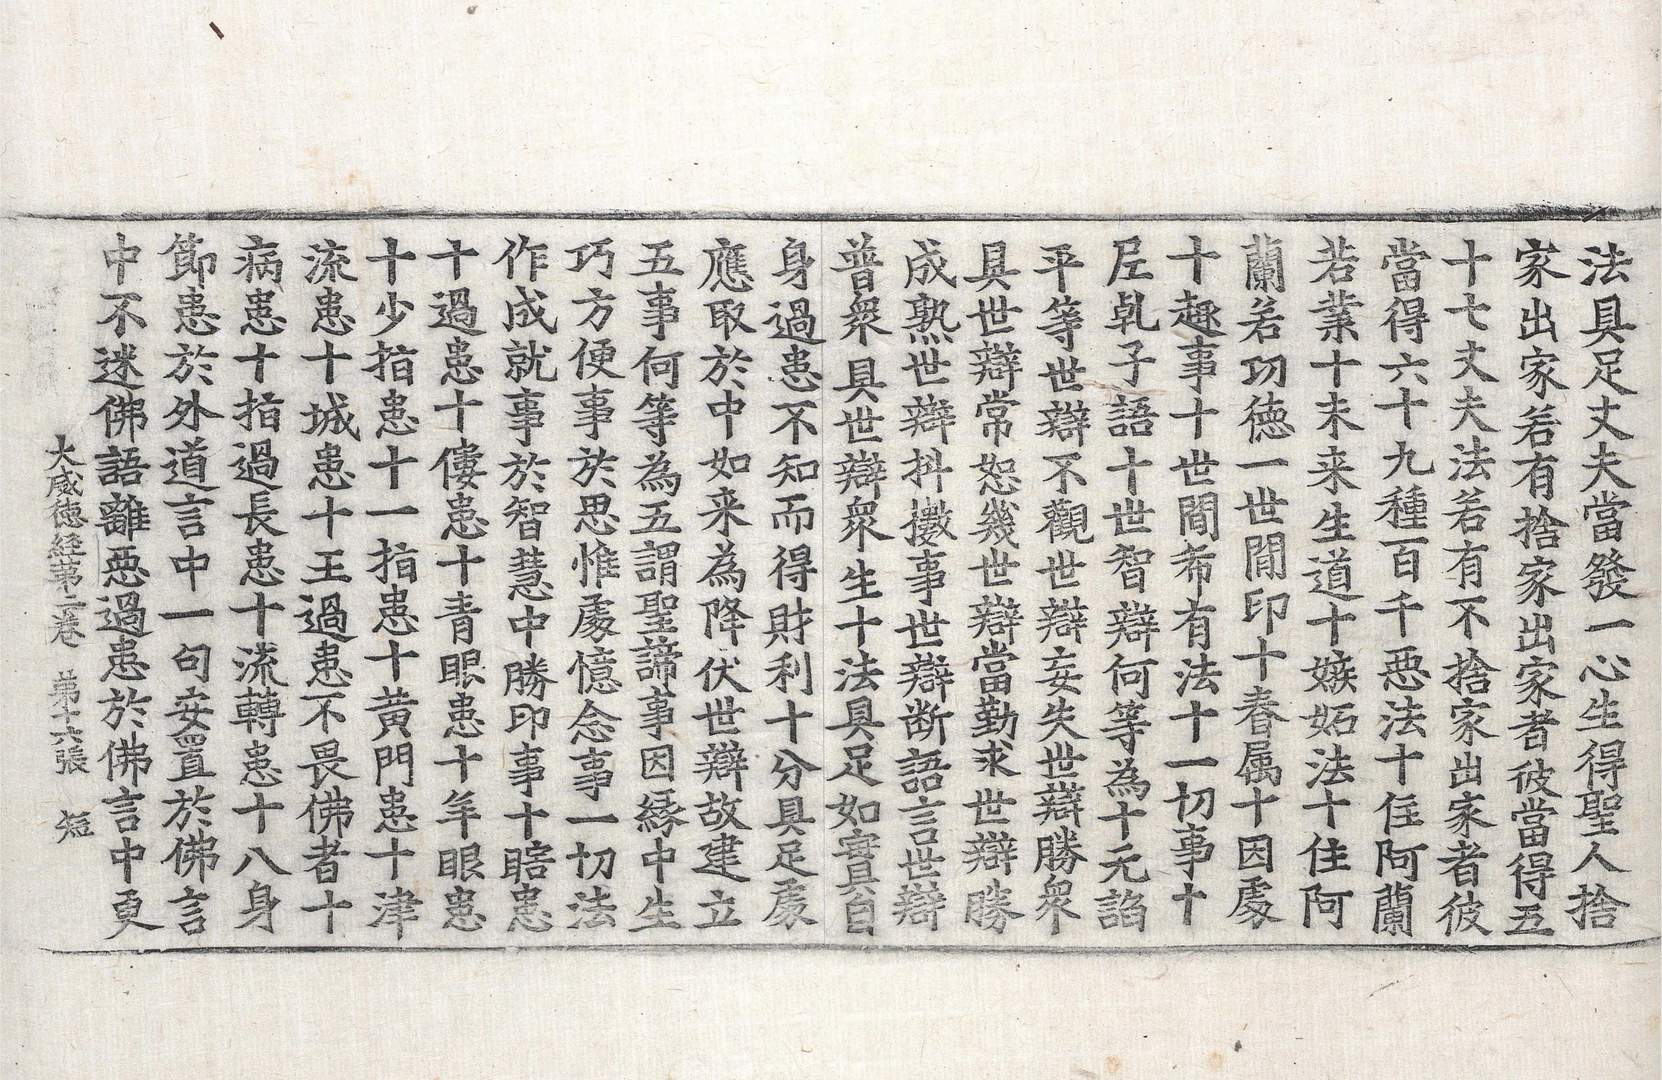 法具足丈夫當發一心生得聖人捨
家出家若有捨家出家者彼當得五
十七丈夫法若有不捨家出家者彼
當得六十九種百千惡法十住阿蘭
若業十未来生道十嫉妬法十住阿
蘭若功徳一世間印十眷属十因處
十趣事十世間希有法十一切事十
尼乹子語十世智辯何等為十无諂
平等世辯不觀世辯妄失世辯勝衆
具世辯常恕幾世辯當勤求世辯勝
成熟世辯抖擻事世辯断語言世辯
普衆具世辯衆生十法具足如實自
身過患不知而得財利十分具足處
應取於中如来為降伏世辯故建立
五事何等為五謂聖諦事因縁中生
巧方便事於思惟處憶念事一切法
作成就事於智慧中勝印事十瞎患
十過患十僂患十青眼患十羊眼患
十少指患十一指患十黄門患十津
流患十城患十王過患不畏佛者十
病患十指過長患十流轉患十八身
節患於外道言中一句安置於佛言
中不迷佛語離惡過患於佛言中更
大威徳經第二卷 第十六張 短